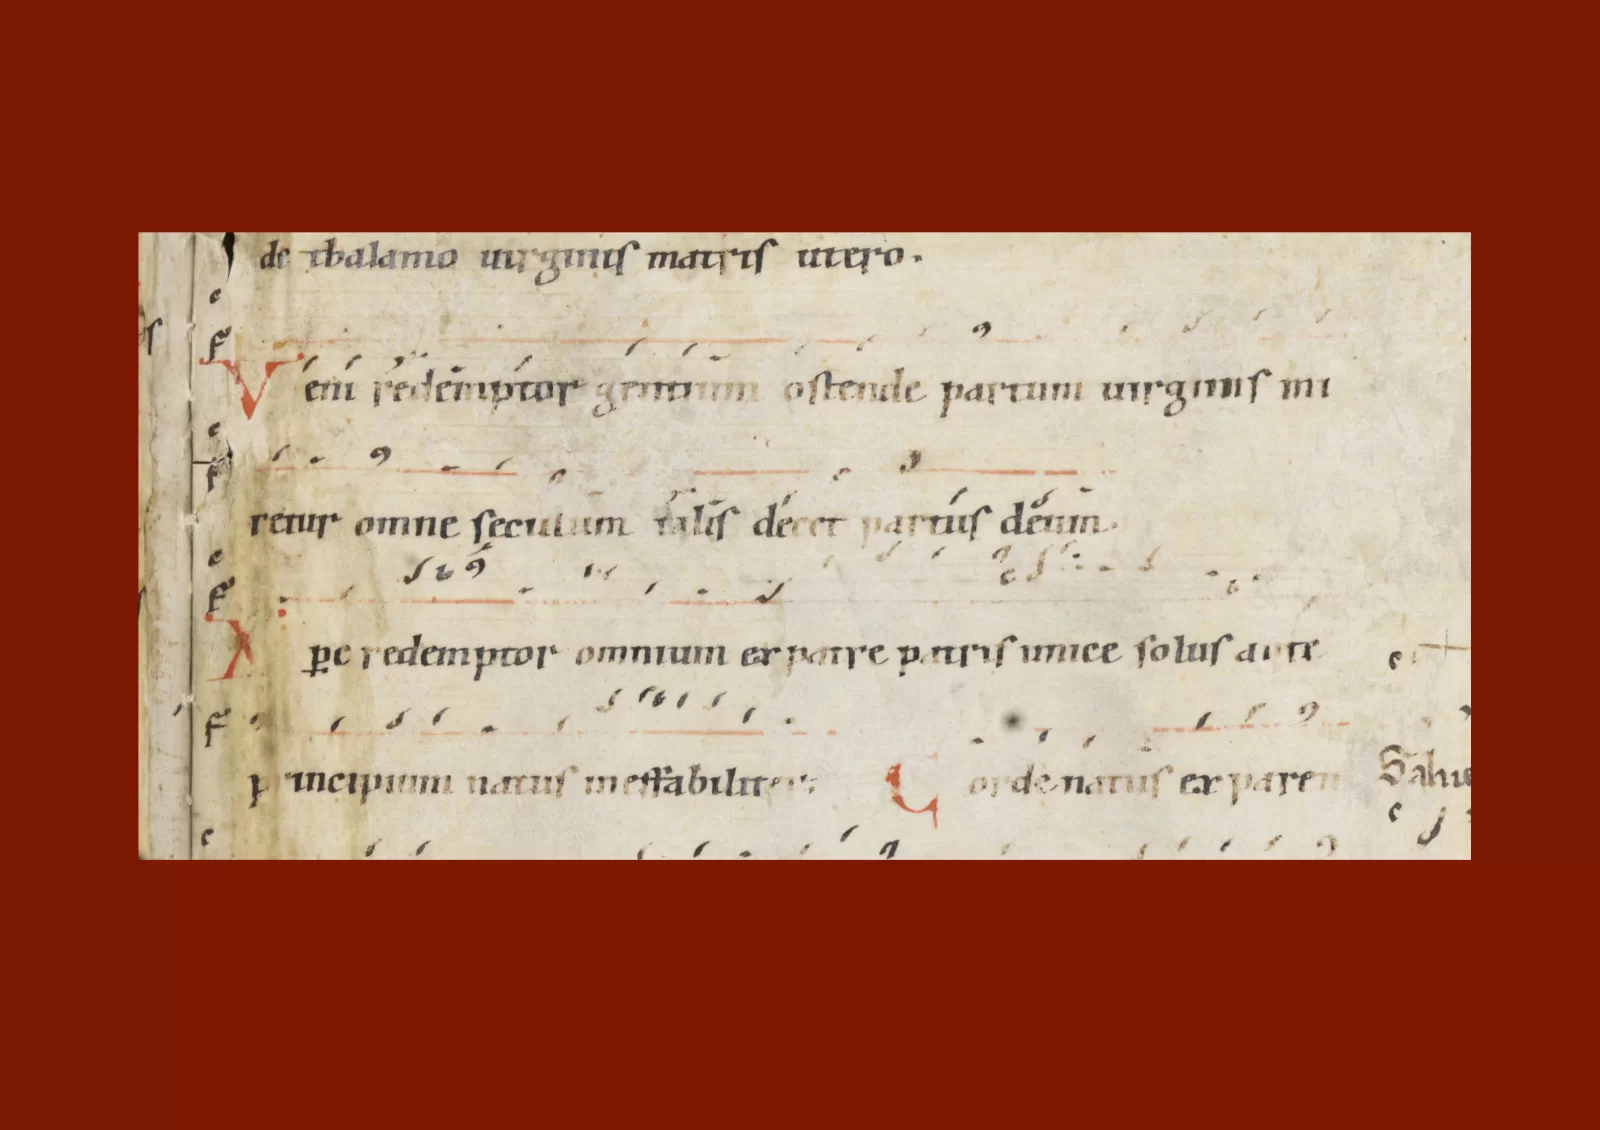 de thalamo uirginis matris utero.
Veni redemptor gentium ostende partum uirginis mi
retur omne seculum talis decet partus deum.
Xpe redemptor omnium ex patre patris unice solus ante
principium natus ineffabiliter:
Corde natus ex paren
Salue